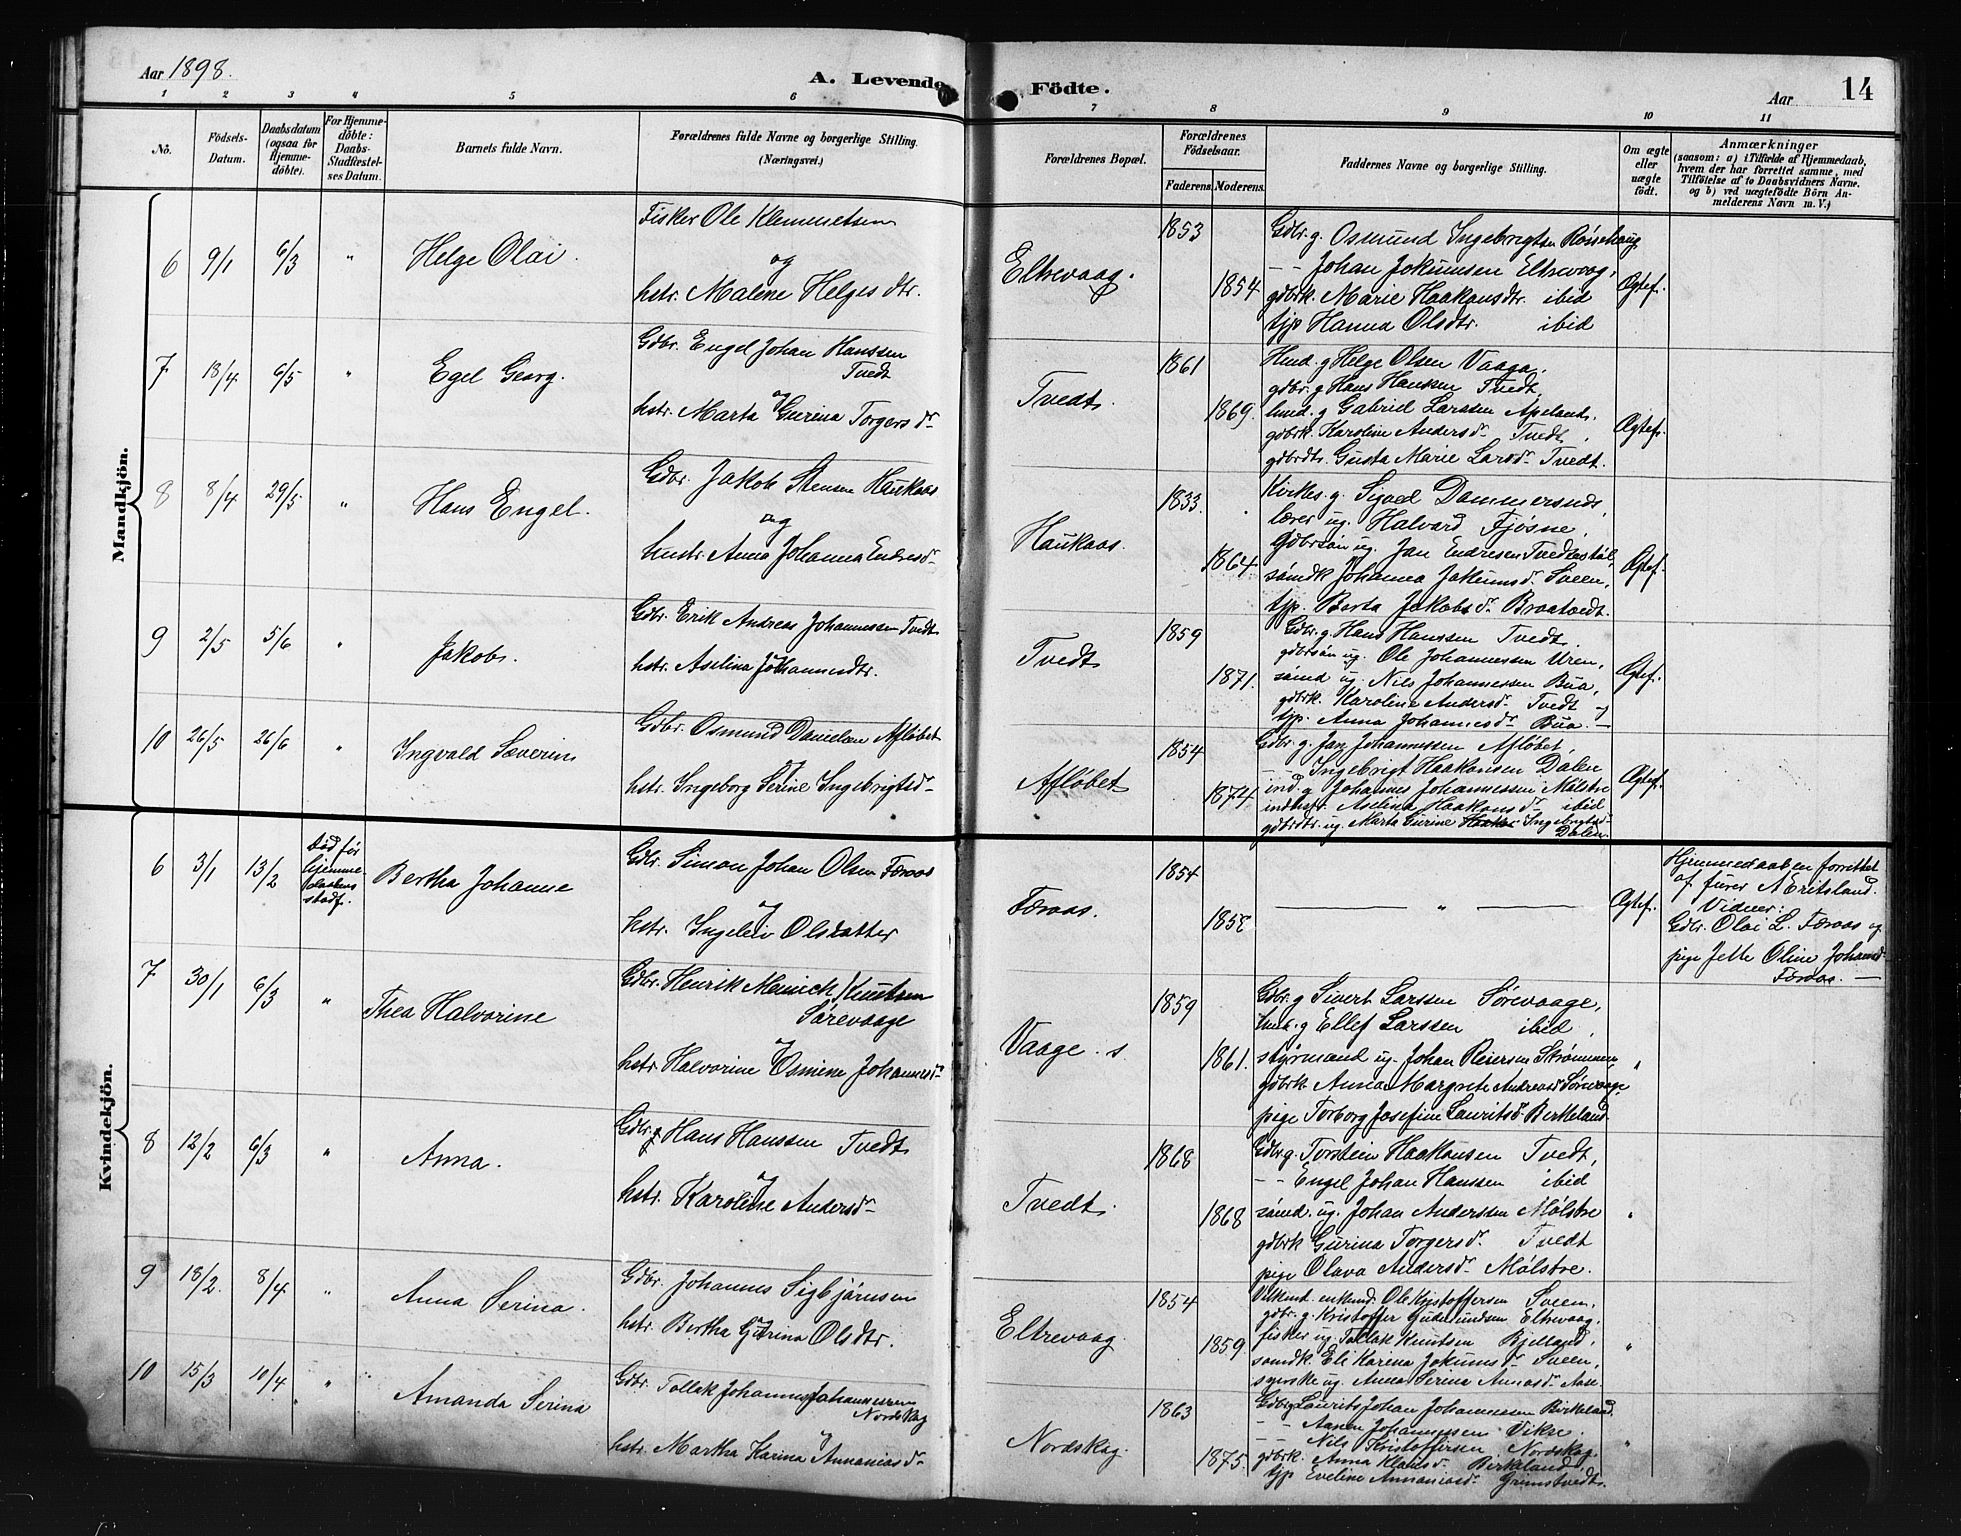 Aar 1898.
A. Levende Födte.
Aar
14
1 2 3 4 5 6 7 8 9 10 11
No.
Födsels-Datum.
Daabsdatum (ogsaa for Hjemme-döbte).
For Hjemme-döbte: Daabs-Stadfæstel-ses Datum.
Barnets fulde Navn.
Forældrenes fulde Navne og borgerlige Stilling. (Næringsvei.)
Forældrenes Bopæl.
Forældrenes Födselsaar.
Faderens. Moderens.
Faddernes Navne og borgerlige Stilling.
Om ægte eller uægte födt.
Anmærkninger
(saasom: a) i Tilfælde af Hjemmedaab,
hvem der har forrettet samme, med
Tilföielse af to Daabsvidners Navne.
og b) ved uægtefödte Börn An-
melderens Navn m. V.)
Mandkjön.
6 9/1 6/3 "
Helge Olai.
Fisker Ole Klemmetsen
og
hstr. Malene Helges dtr.
Eltrevaag.
1853
1854
Gdbr. g. Osmund Ingebrigtsen Røisehaug
- - Johan Jokumsen Eltrevaag,
gdbrk. Marie Haakonsdtr. ibid
tjp Hanna Olsdtr. ibid
Ægtef.
7 18/4 6/5 "
Egel Georg.
Gdbr. Engel Johan Hanssen
Tvedt
og
hstr. Marta Gurina Torgersdr
Tvedt.
1861
1869.
Hmd. g Helge Olsen Vaaga,
gdbr. g Hans Hanssen Tvedt,
hmd. g Gabriel Larssen Apeland,
gdbrk. Karoline Andersdr Tvedt,
gdbrdtr. Gusta Marie Larsdr Tvedt.
Ægtef.
8 8/4 29/5 "
Hans Engel.
Gdbr. Jakob Stensen Haukaas
og
hustr. Anna Johanna Endresdr
Haukaas.
1833.
1864
Kirkes. g. Sigvd Dommersnes,
lærer ug. Halvard Fjøsne,
Gdbrsøn ug. Jan Endresen Tvedtestøl,
sømdk Johanna Jakumsdr Sveen,
tjp. Berta Jakobsdr Braatvedt.
Ægtef.
9 2/5 5/6 "
Jakob.
Gdbr. Erik Andreas Johannessen Tvedt
og
hstr. Aselina Johannesdtr.
Tvedt
1859
1871.
Gdbr. g. Hans Hanssen Tvedt,
gdbrsøn ug. Ole Johannessen Uren,
sømd ug. Nils Johannessen Bua,
gdbrk. Karoline Andersdr Tvedt og
tjp. Anna Johannesdr Bua. -
Ægtef.
10 26/5 26/6 "
Ingvald Severin
Gdbr. Osmund Danielsen Afløbet
og
hstr. Ingeborg Serine Ingebrigtsdr
Afløbet
1854
1874
Gdbr. g. Jan Johannessen Afløbet,
- - Ingebrigt Haakonsen Dalen
ind. g Johannes Johannessen Mølstre
indhstr. Aselina Haakonsdr ibid
gdbrdtr. ug. Marta Gurine Ingebrigtsdr
Dalen.
Ægtef.
Kvindekjön.
6 3/1 13/2
Død før
hjemme-
daabens
stadf.
Bertha Johanne
Gdbr. Simon Johan Olsen Færaas
og
hstr. Ingeleiv Olsdatter
Færaas.
1854
1858
"
Ægtef.
Hjemmedaaben forrettet
af furer Eritsland.
Vidner:
Gdbr. Olai L. Færaas og
pige Jette Oline Johansdr
Færaas. -
7 30/1 6/3 "
Thea Halvorine
Gdbr. Henrik Meinich Knutsen
Sørevaage
og
hstr. Halvorine Osmine Johannesdr
Vaage. s.
1859
1861.
Gdbr. g Sivert Larssen Sørevaage,
hmd. g Ellef Larssen ibid,
styrmand ug. Johan Reiersen Strømmen,
gdbrk. Anna Margrete Andreasdr Sørevaage
pige Torborg Josefine Lauritsdr Birkeland.
"
8 12/2 6/3 "
Anna.
Gdbr. g Hans Hanssen Tvedt
og
hstr. Karoline Andersdr
Tvedt.
1868
1868
Gdbr. g. Torstein Haakonsen Tvedt,
- - Engel Johan Hanssen ibid
sømd. ug. Johan Anderssen Mølstre
gdbrk Gurina Torgersdr. Tvedt
pige Olava Andersdr Mølstre.
"
9 18/2. 8/4 "
Anna Serina.
Gdbr. Johannes Sigbjørnsen
og
hstr. Bertha Gurina Olsdtr.
Eltrevaag.
1854
1859.
enkmd. Ole Kristoffersen Sveen,
gdbr. g. Kristoffer Gudmundsen Eltrevaag,
fisker ug. Tollak Knutsen Bjelland,
sømdk. Eli Karina Jokumsdr Sveen,
syerske ug. Anna Serina
"
10 15/3 10/4 "
Amanda Serina
Gdbr. Tollak Johannes Johannessen
Nordskag
og
hstr. Martha Karina Annaniasdr
Nordskag.
1863
1875.
Gdbr. g Laurits Johan Johannessen Birkeland.
- - Aanen Johannessen Vikse.
- - Nils Kristoffersen Nordskag.
gdbrk. Anna Klausdr. Birkeland,
tjp Eveline Annaniasdr Grimstvedt.
"